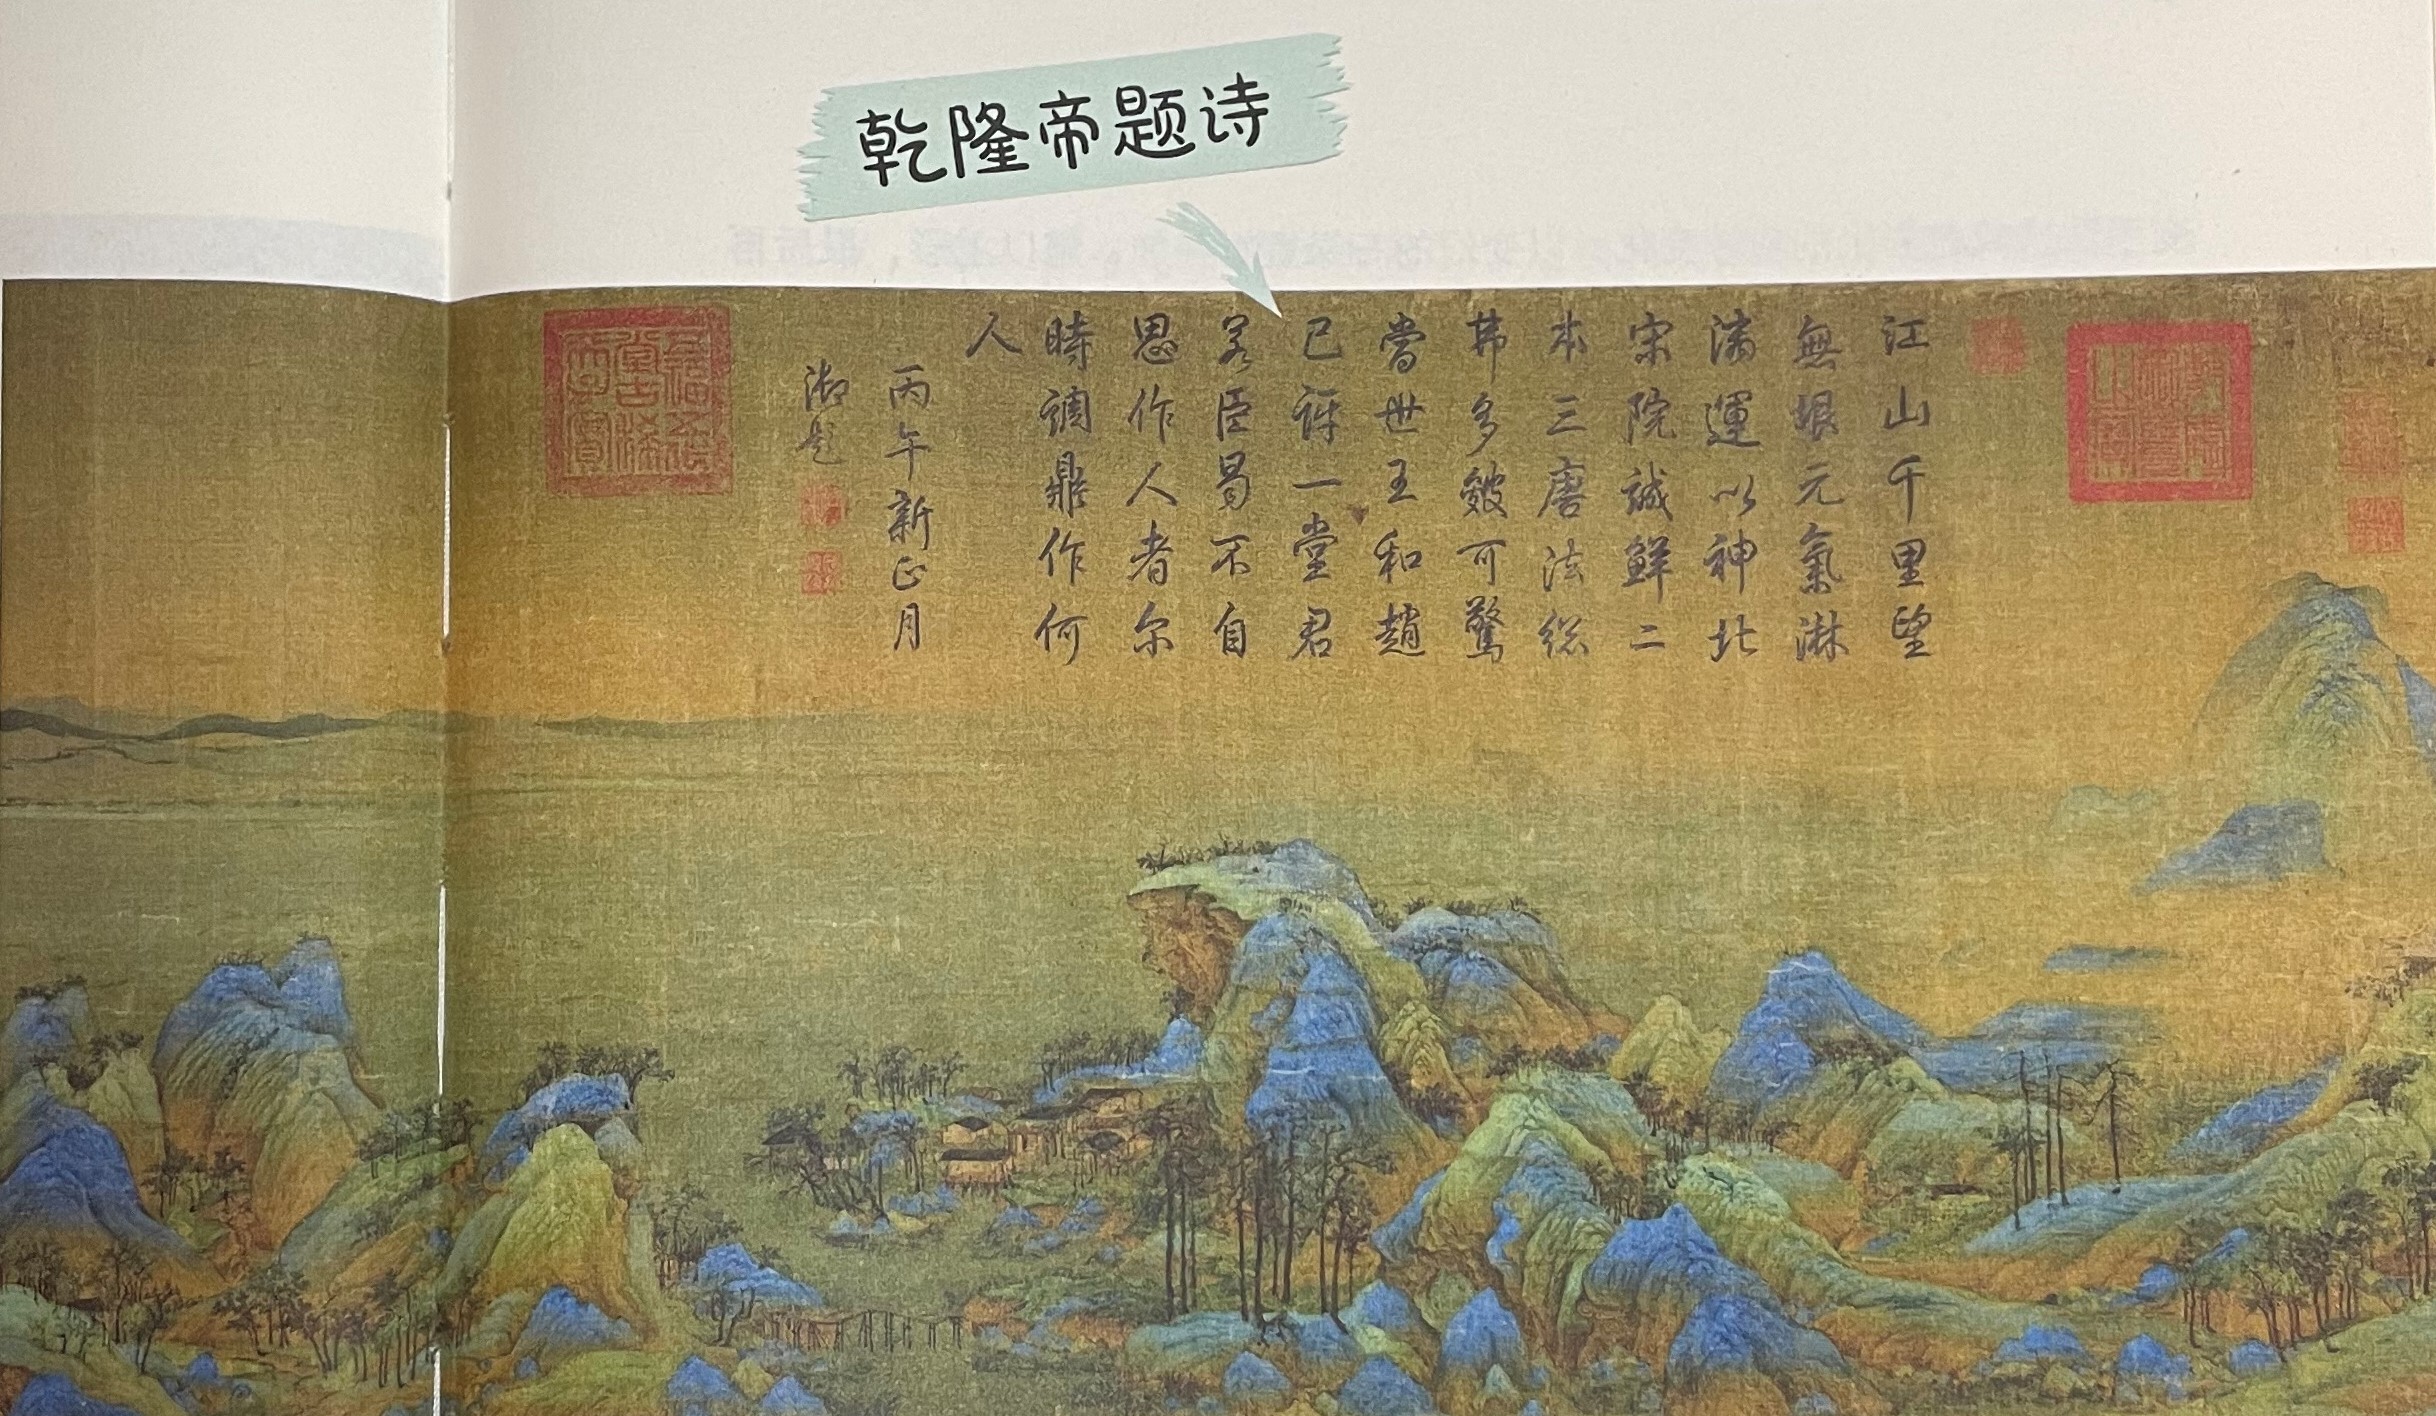 乾隆帝题诗
江山千里望
無垠元氣淋
漓運以神北
宋院誠鮮二
本三唐法總
弗多皴可驚
當世王和趙
已訝一堂君
若臣曷不自
思作人者尔
時調鼎作何
人
丙午新正月
御題